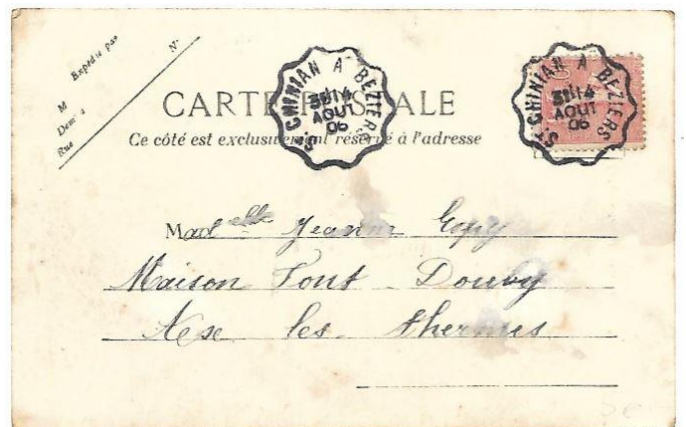 Expédié par
N°
M
Demt à
Rue
CARTE POSTALE
Ce côté est exclusivement réservé à l'adresse
ST CHINIAN A BEZIERS
14
AOUT
06
ST CHINIAN A BEZIERS
14
AOUT
06
Madelle Jeanne
Maison Font - Douvy
les thermes